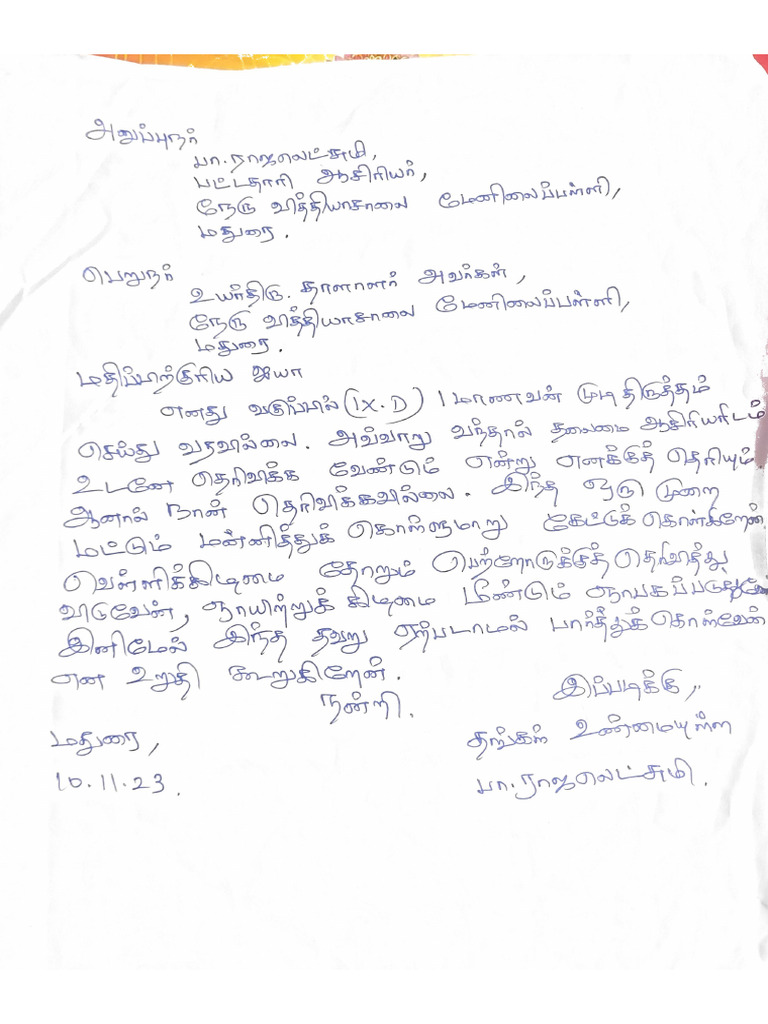 அனுப்புநர்
பா.ராஜலெட்சுமி,
பட்டதாரி ஆசிரியர்,
நேரு வித்தியாசாலை மேனிலைப்பள்ளி,
மதுரை.
பெறுநர்
உயர்திரு. தாளாளர் அவர்கள்,
நேரு வித்தியாசாலை மேனிலைப்பள்ளி,
மதுரை.
மதிப்பிற்குரிய ஐயா
எனது வகுப்பில் (IX.D) 1 மாணவன் முடி திருத்தம்
செய்து வரவில்லை. அவ்வாறு வந்தால் தலைமை ஆசிரியரிடம்
உடனே தெரிவிக்க வேண்டும் என்று எனக்குத் தெரியும்.
ஆனால் நான் தெரிவிக்கவில்லை. இந்த ஒரு முறை
மட்டும் மன்னித்துக் கொள்ளுமாறு கேட்டுக் கொள்கிறேன்
வெள்ளிக்கிழமை தோறும் பெற்றோருக்குத் தெரிவித்து
விடுவேன், ஞாயிற்றுக் கிழமை மீண்டும் ஞாபகப்படுத்துவேன்
இனிமேல் இந்த தவறு ஏற்படாமல் பார்த்துக் கொள்வேன்
என உறுதி கூறுகிறேன்.
நன்றி.
இப்படிக்கு,
மதுரை,
தங்கள் உண்மையுள்ள
10.11.23.
பா.ராஜலெட்சுமி.